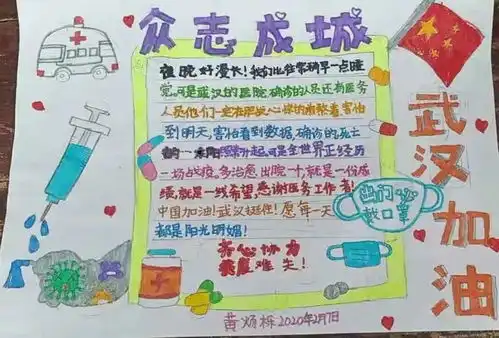 众志成城
夜晚好漫长!我们比往常稍早一点睡
觉,可是武汉的医院,确诊的人员还有医务
人员他们一定在
到明天,害怕看到数据,确诊的,死亡
的……升起,可是全世界正经历
一场战疫,多治愈出院一个,就是一份成
绩,就是一线希望,感谢医务工作者!
中国加油!武汉挺住!愿每一天
都是阳光明媚!
齐心协力
共度难关!
武汉加油
出门
戴口罩
黄炀栎2020年2月7日